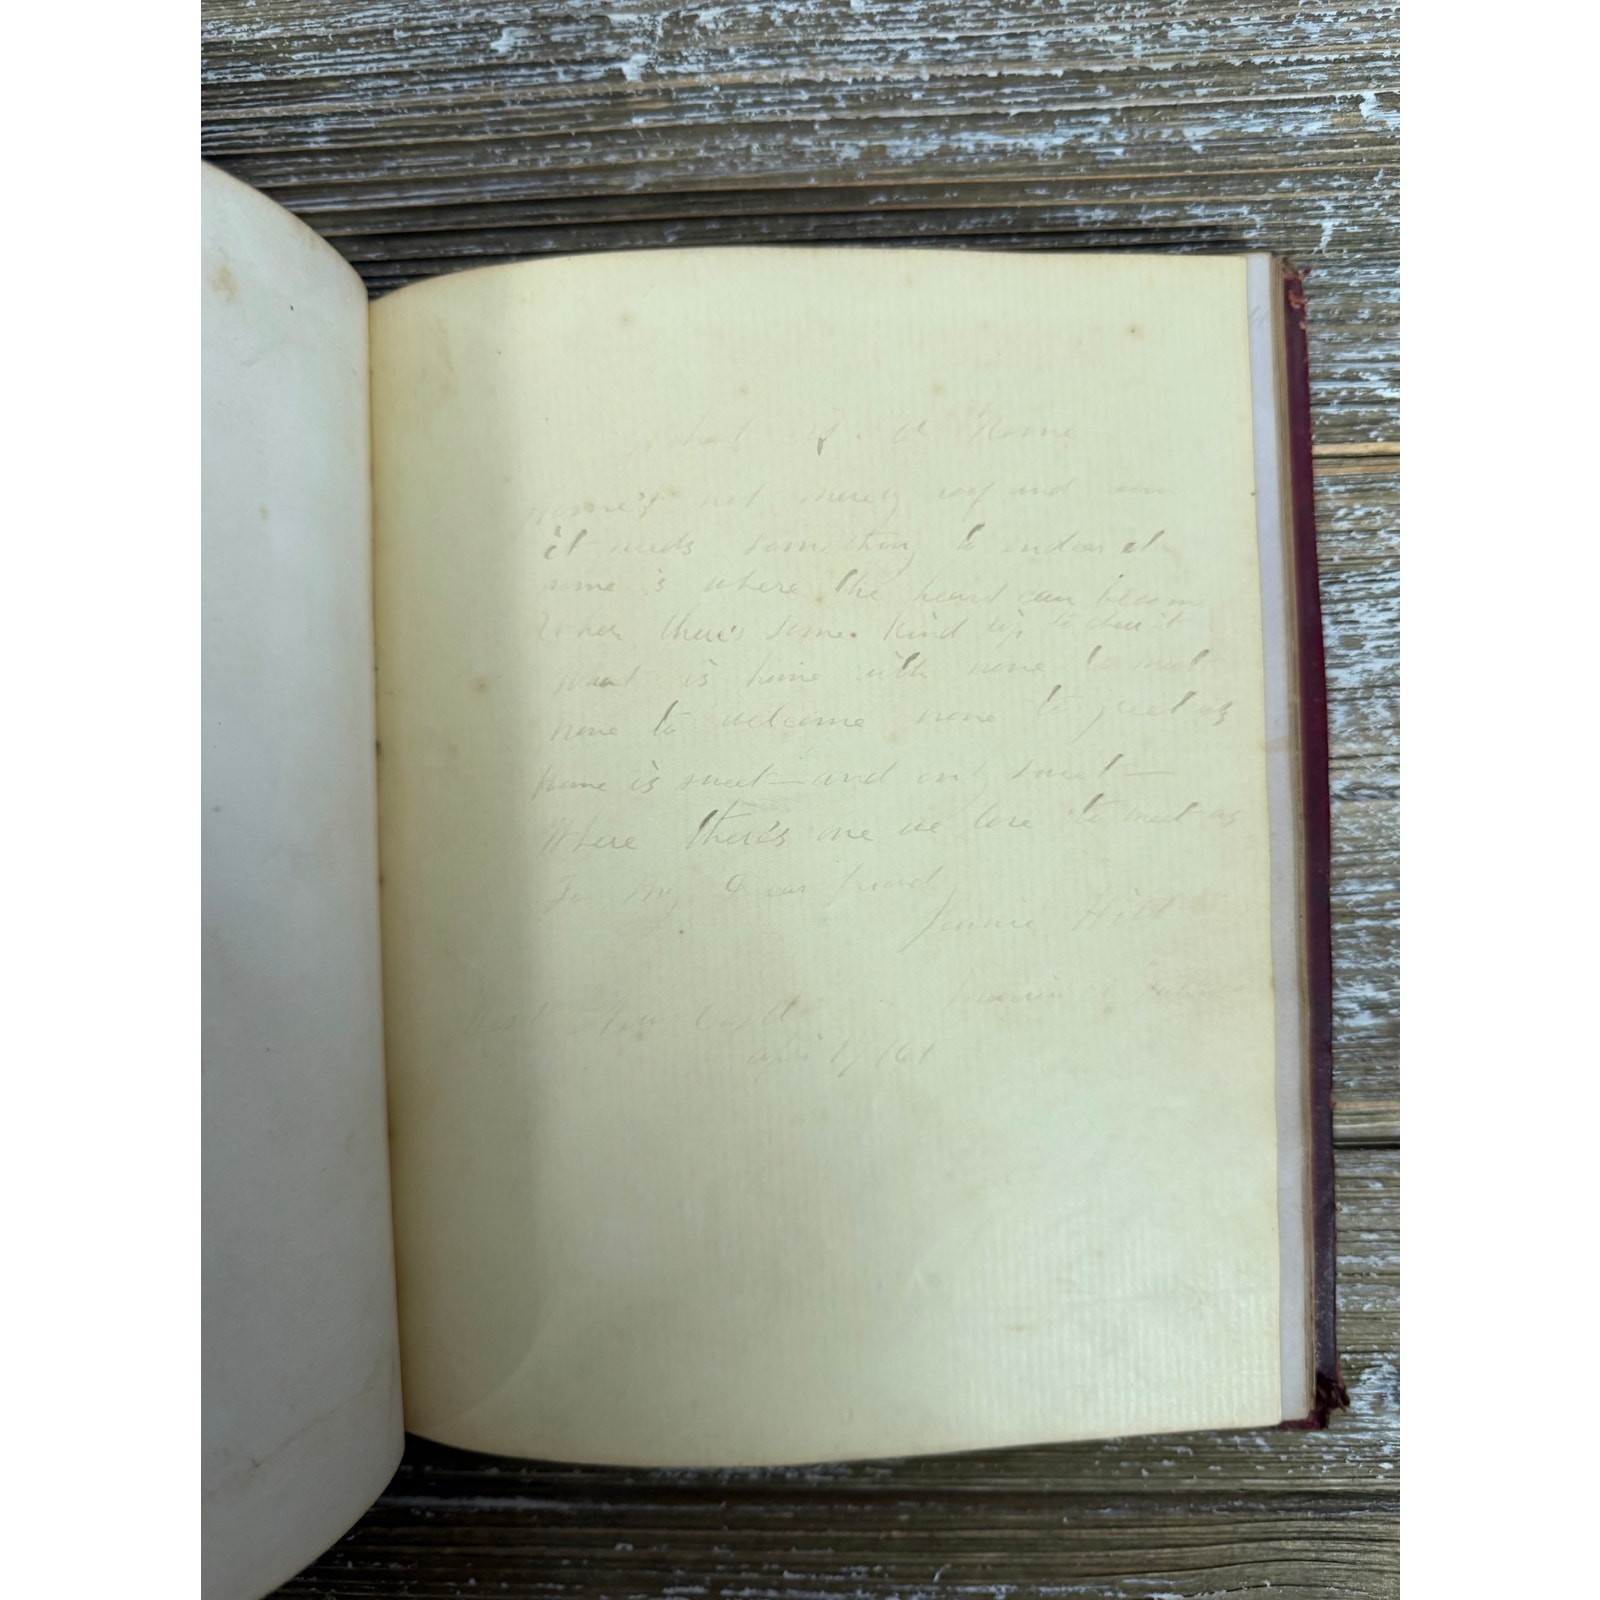 What is a Home
Home's not merely roof and room
it needs something to endear it
home is where the heart can bloom
Where there's some kind lip to cheer it
What is home with none to meet
none to welcome none to greet us
home is sweet and only sweet
Where there's one we love to meet us
To my Dear friend
Jennie Hill
West New